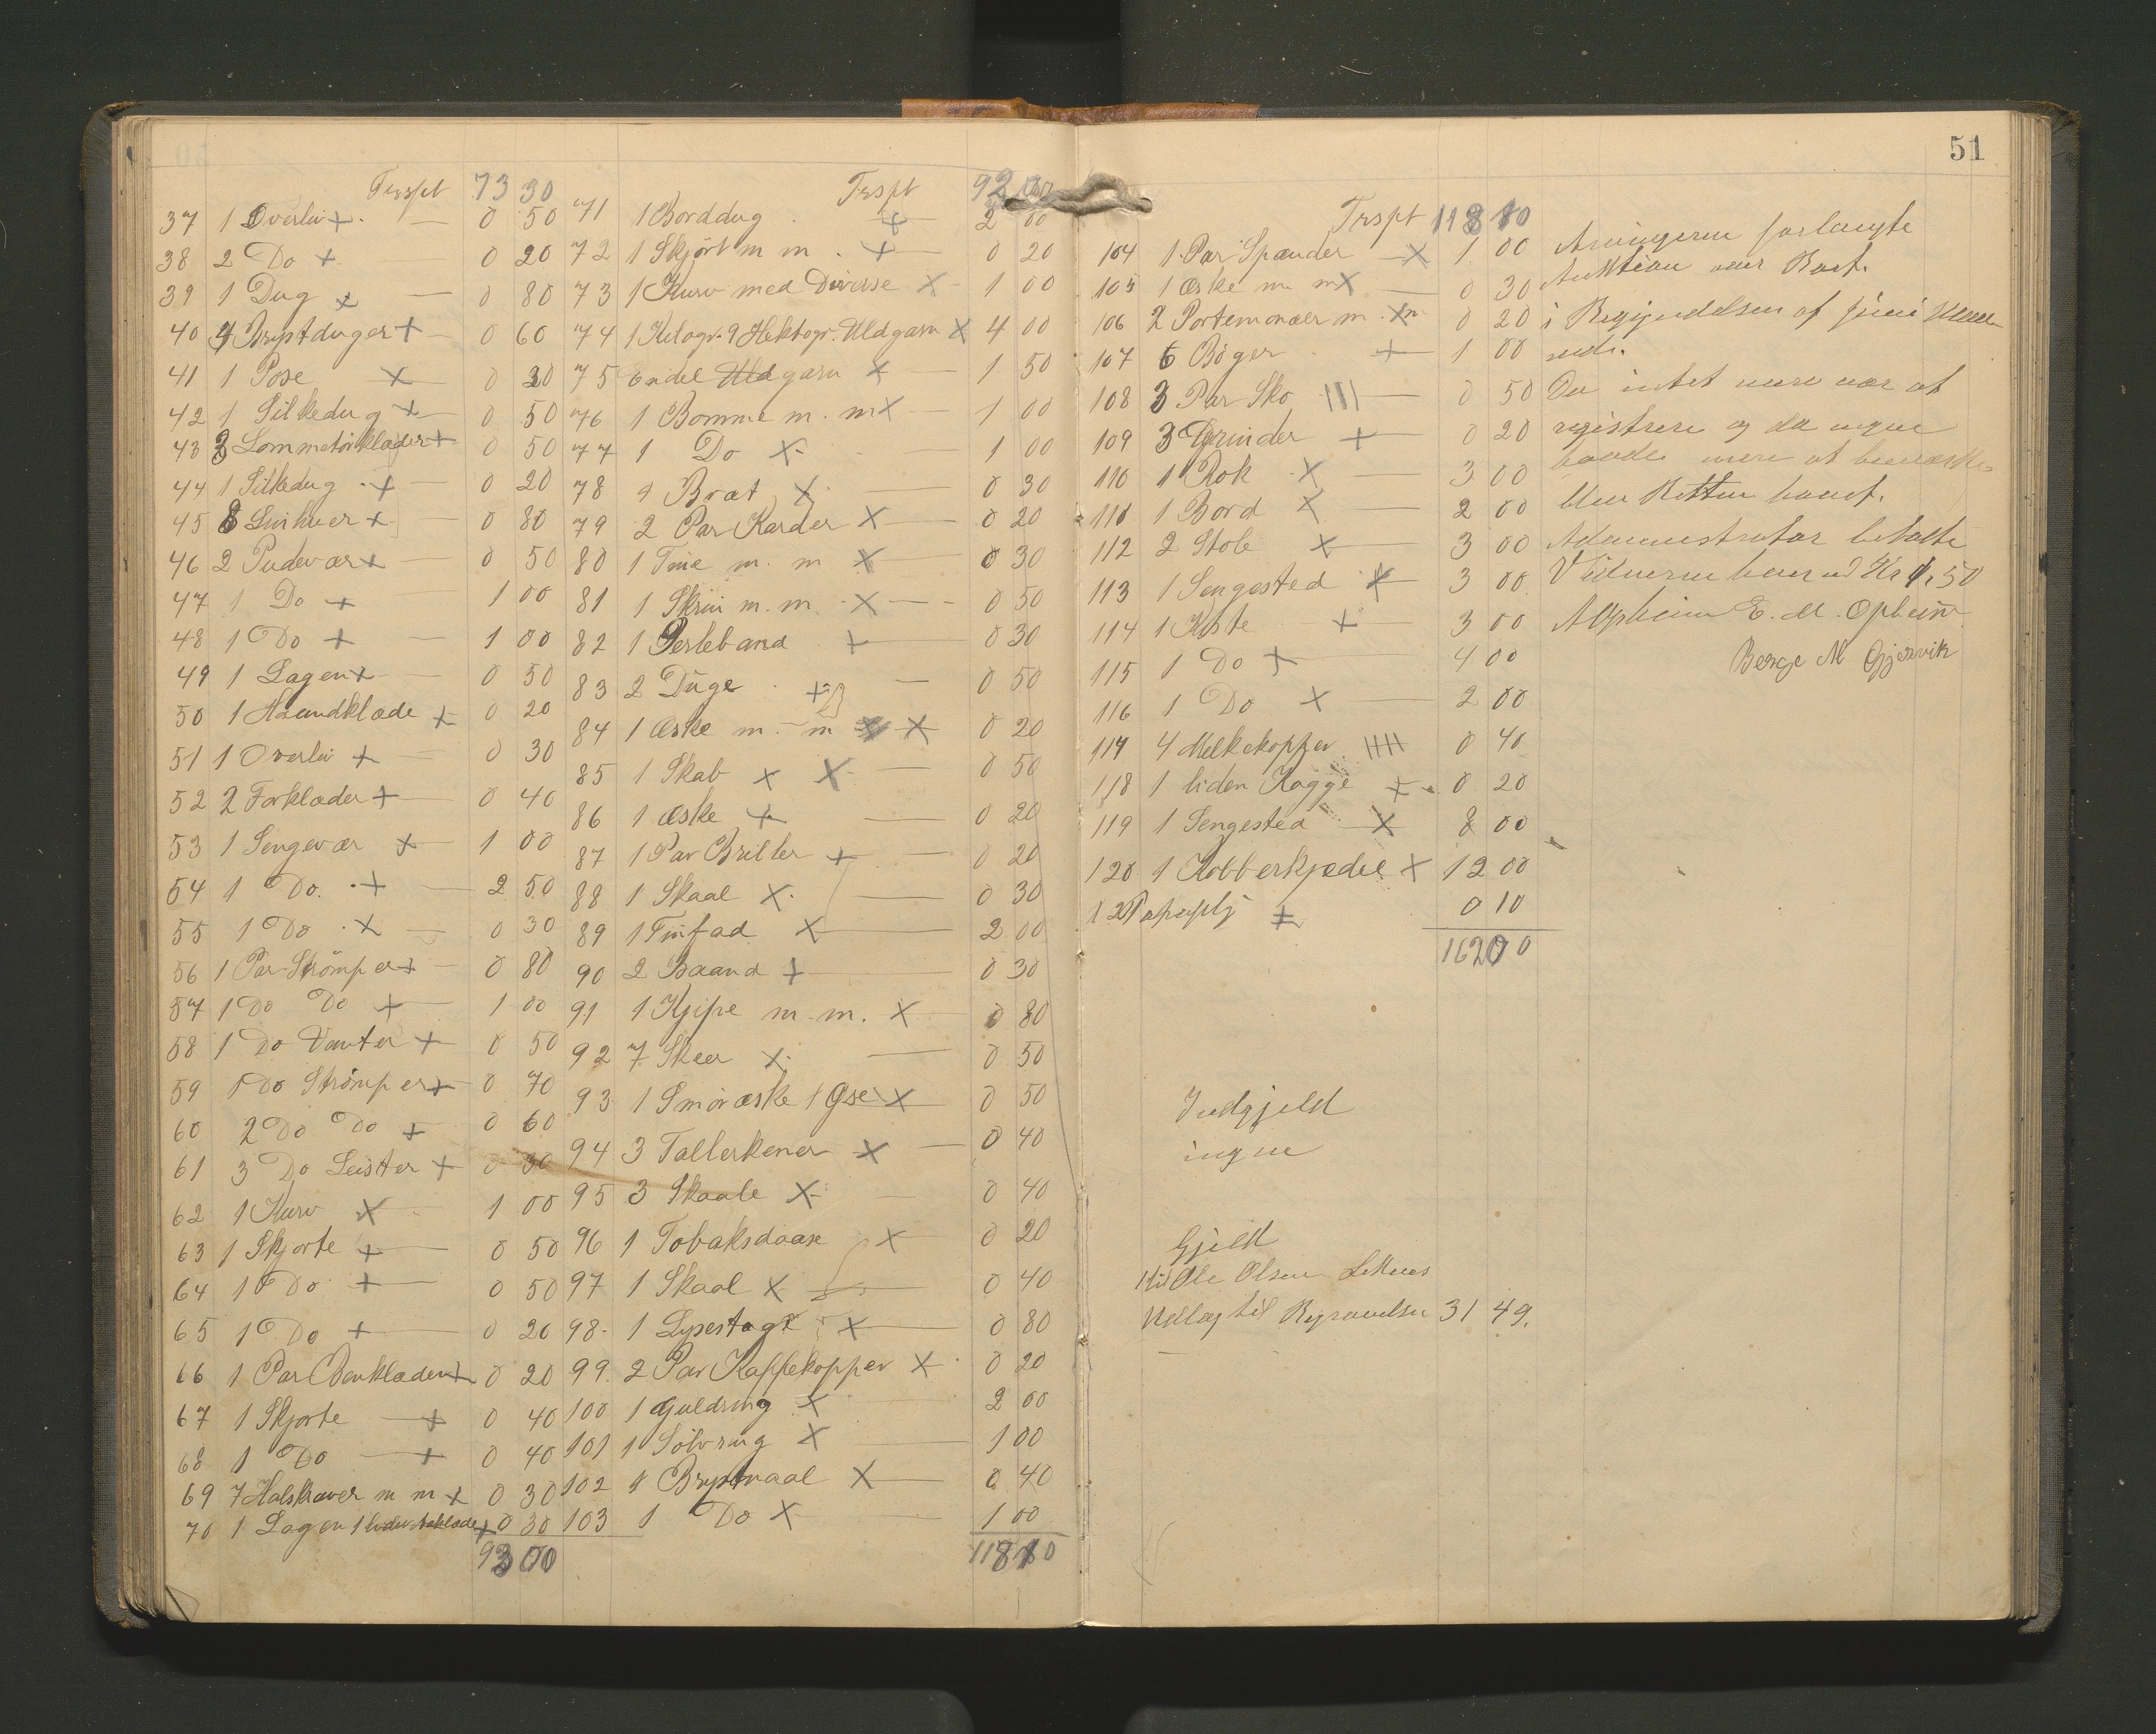 Trspt 73 30
37 1 Overliv + 0 50
38 2 Do + 0 20
39 1 Dug + 0 80
40 4 Brystduger + 0 60
41 1 Pose X 0 30
42 1 Silkedug + 0 50
43 3 Lommetörklæder + 0 50
44 1 Silkedug + 0 20
45 8 Linhuer + 0 80
46 2 Pudevær + 0 50
47 1 Do + 1 00
48 1 Do + 1 00
49 1 Lagen + 0 50
50 1 Haandklæde + 0 20
51 1 Overliv + 0 30
52 2 Forklæder + 0 40
53 1 Sengevær + 1 00
54 1 Do. + 2 50
55 1 Do X 0 30
56 1 Par Strömper + 0 80
57 1 Do Do + 1 00
58 1 Do Vanter + 0 50
59 1 Do Strömper + 0 70
60 2 Do Do + 0 60
61 3 Do Leister + 0 30
62 1 Kurv X 1 00
63 1 Skjorte + 0 50
64 1 Do + 0 50
65 1 Do + 0 20
66 1 Par Benklæder + 0 20
67 1 Skjorte + 0 40
68 1 Do + 0 40
69 7 Halskraver m m + 0 30
70 1 Lagen 1 + 0 30
93 00
Trspt 92
71 1 Borddug + 2 00
72 1 Skjört m m + 0 20
73 1 Kurv med Diverse X 1 00
74 1 Kilogr. 9 Hektogr. Uldgarn X 4 00
75 Endel Uldgarn X 1 50
76 1 Bomme m. m X 1 00
77 1 Do X 1 00
78 9 Bræt X 0 30
79 2 Par Karder X 0 20
80 1 Tine m. m X 0 30
81 1 Skrin m. m. X 0 50
82 1 Perleband + 0 30
83 2 Duge + 0 50
84 1 Æske m. m X 0 20
85 1 Skab X X 0 50
86 1 Æske + 0 20
87 1 Par Briller + 0 20
88 1 Skaal X 0 30
89 1 Tinfad X 2 00
90 2 Baand + 0 30
91 1 Kjipe m. m. X 0 80
92 7 Skeer X 0 50
93 1 Smöræske 1 Øse X 0 50
94 3 Tallerkener X 0 40
95 3 Skaale X 0 40
96 1 Tobaksdaase X 0 20
97 1 Skaal X 0 40
98 1 Lysestage X 0 80
99. 2 Par Kaffekopper X 0 20
100 1 Guldring X 2 00
101 1 Sölvring X 1 00
102 1 Brystnaal X 0 40
103 1 Do X 1 00
118 10
51
Trspt 118 10
104 1 Par Spænder X 1 00
105 1 Æske m m X 0 30
106 2 Portemonæer m. m X 0 20
107 6 Böger + 1 00
108 3 Par Sko III 0 50
109 3 Grinder + 0 20
110 1 Rok X 3 00
111 1 Bord X 2 00
112 2 Stole X 3 00
113 1 Sengested X 3 00
114 1 Kiste + 3 00
115 1 Do + 4 00
116 1 Do X 2 00
117 4 Melkekopper IIII 0 40
118 1 liden Kagge + 0 20
119 1 Sengested X 8 00
120 1 Kobberkjedel X 12 00
0 10
162 00
Indgjeld
ingen
Gjeld
til Ole Olsen
Udlæg til Begravelse 31 49.
Arvingerne forlangte
Auktion over Boet
i Begyndelsen af Juni
Da intet mere var at
registrere og da ingen
havde mere at bemærke
blev Retten hævet.
Administrator betalte
Vidnerne hver
E. M. Opheim
Berge M Gjervik